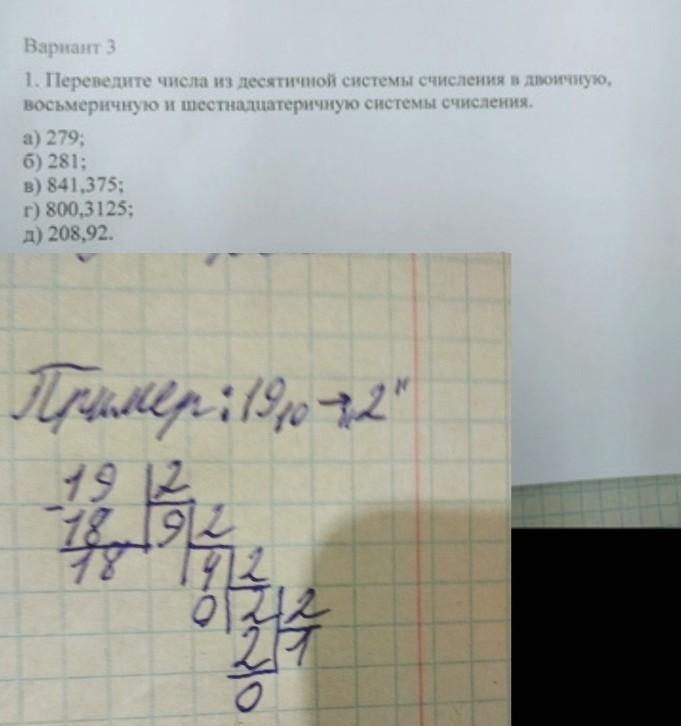 Вариант 3
1. Переведите числа из десятичной системы счисления в двоичную,
восьмеричную и шестнадцатеричную системы счисления.
а) 279;
б) 281;
в) 841,375;
г) 800,3125;
д) 208,92.
Пример: 19₁₀ → „2"
- 19 2
18 9 2
18 4 2
0 2 2
2 1
0